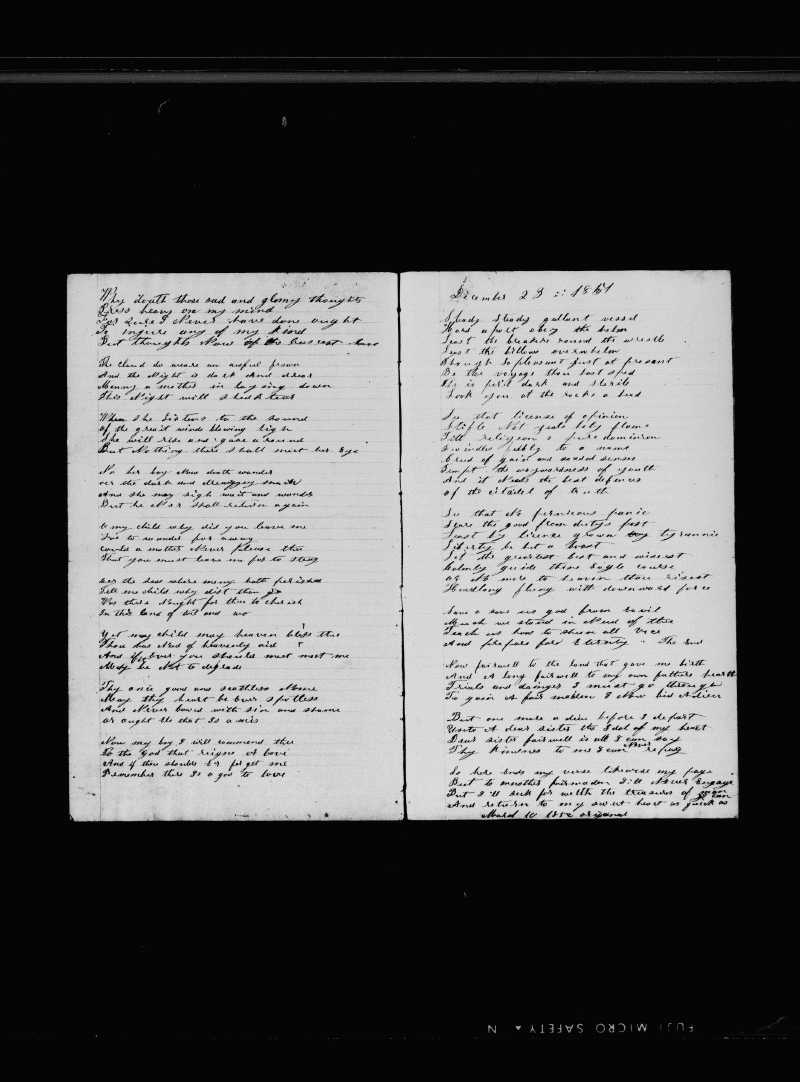 Why douth those sad and glomy thoughts
Press heavy on my mind
For sure I Never have done ought
To injure any of my kind
But thoughts Now of the

The Cloud do weare an awful frown
And the Night is dark And drear
Manny a mother in laysing down
This Night will shed tear

When She Listens to the sound
of the great winds blowing high
She will rise and gase around
But Nothing there shall meet her Eye

No her boy Now doath wander
oer the dark and dreary
And she may sigh wait and wonder
But he Near Shall return again

O my child why did you leave me
for away
could a mother Never please thee
That you must leave me for to stray

oer the Seas where meny hath perished
Tell me child why dist thou go
Was there Naught for thee to cherish
In this Land of and wo

Yet my child may heaven bless thee
Thou has Need of heavenly aid
And if Ever you should meet meet me
May be Not to degrade

Thy once good and scathless Name
May thy heart be Ever spotless
And Never bowed with Sin and shame
or ought Els that Is amis

Now my boy I will commend thee
to the God that reigns Above
And if thou shoulds Ere forget me
Remember there Is a god to love

December 23 :: 1851

Steady Steady gallant vessel
Hard aport obey the helm
Least the breakers round the wrestle
Least the billows overwhelm
Though So pleasant just at present
Be the voyage thou hast sped
Sky is peril dark and sterile
Look you at the rocks a head

See that license of opinion
Stifle Not zeals holy flame
Till religion s pure dominion
Dwindles feebly to a name
Creed of gain and sensual senses
Tempt the waywardness of youth
And it Needs the best defences
of the citadel of truth

See that No pernicous panic
Scars the good from dutys post
Least by license grown tyrannic
Liberty be but a boast
Let the greatest best and wisest
Calmly guide thine Eagle course
as No more to heaven thou risest
Headlong flung with downward force

Save o save us god from Eavil
Much we stand in Need of thee
Teach us how to shun all Vice
And prepare for Eternity " The End

Now fairwell to the land that gave me birth
And A long fairwell to my own fathers hearth
Trials and dangers I must go through
To gain A fair maden I Now bid Adieu

But one more a dieu before I depart
Unto A dear sister the Idol of my heart
Dear sister fairwell is all I can say
Thy kindness to me I can Never repay

So here ends my verse likewise my page
But to another fairmaden I'll Never Engage
But I'll seek for welth the treasures of man
And return to my sweet heart as quick as I can
March 10 1852 original

FUJI MICRO SAFETY ▲ N